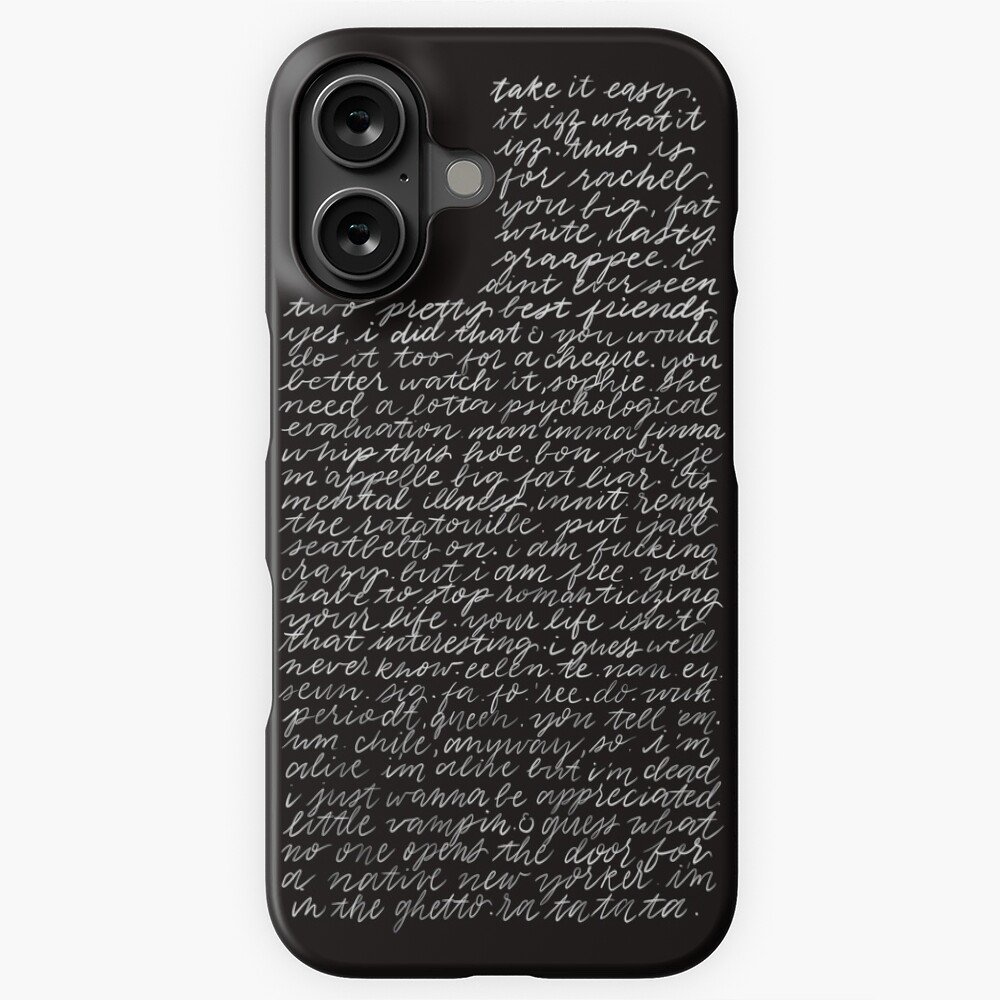 take it easy.
it izz what it
izz. this is
for rachel,
you big, fat
white, nasty.
graappee. i
aint ever seen
two pretty best friends.
yes, i did that & you would
do it too for a cheque. you
better watch it, sophie. she
need a lotta psychological
evaluation. man imma finna
whip this hoe. bon soir, je
m'appelle big fat liar. it's
mental illness, innit. remy
the ratatouille. put yall
seatbelts on. i am fucking
crazy. but i am free. you
have to stop romanticizing
your life. your life isn't
that interesting. i guess we'll
never know. eelln. te. nan. ey.
seun. sig. fa. fo. 'ree. do. wuh.
periodt, queen. you tell 'em.
um. chile, anyway, so. i'm
alive im alive but i'm dead
i just wanna be appreciated.
little vampin. & guess what
no one opens the door for
a native new yorker. im
in the ghetto. ra ta ta ta.